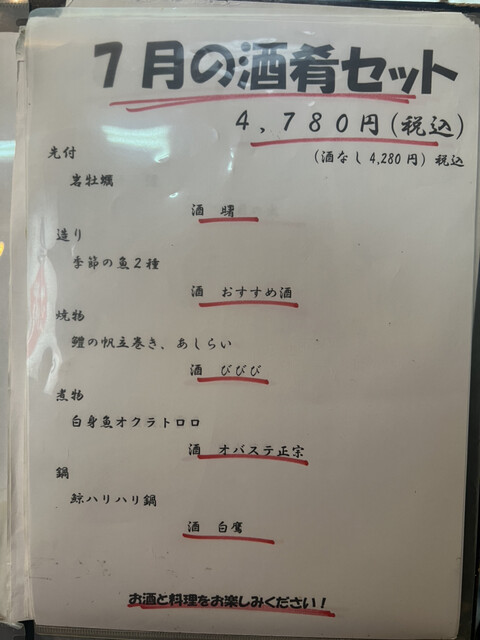 7月の酒肴セット
4,780円(税込)
(酒なし4,280円)税込
先付
岩牡蠣
酒 曙
造り
季節の魚2種
酒 おすすめ酒
焼物
鱧の帆立巻き、あしらい
酒 びびび
煮物
白身魚オクラトロロ
酒 オバステ正宗
鍋
鯨ハリハリ鍋
酒 白鷹
お酒と料理をお楽しみください!